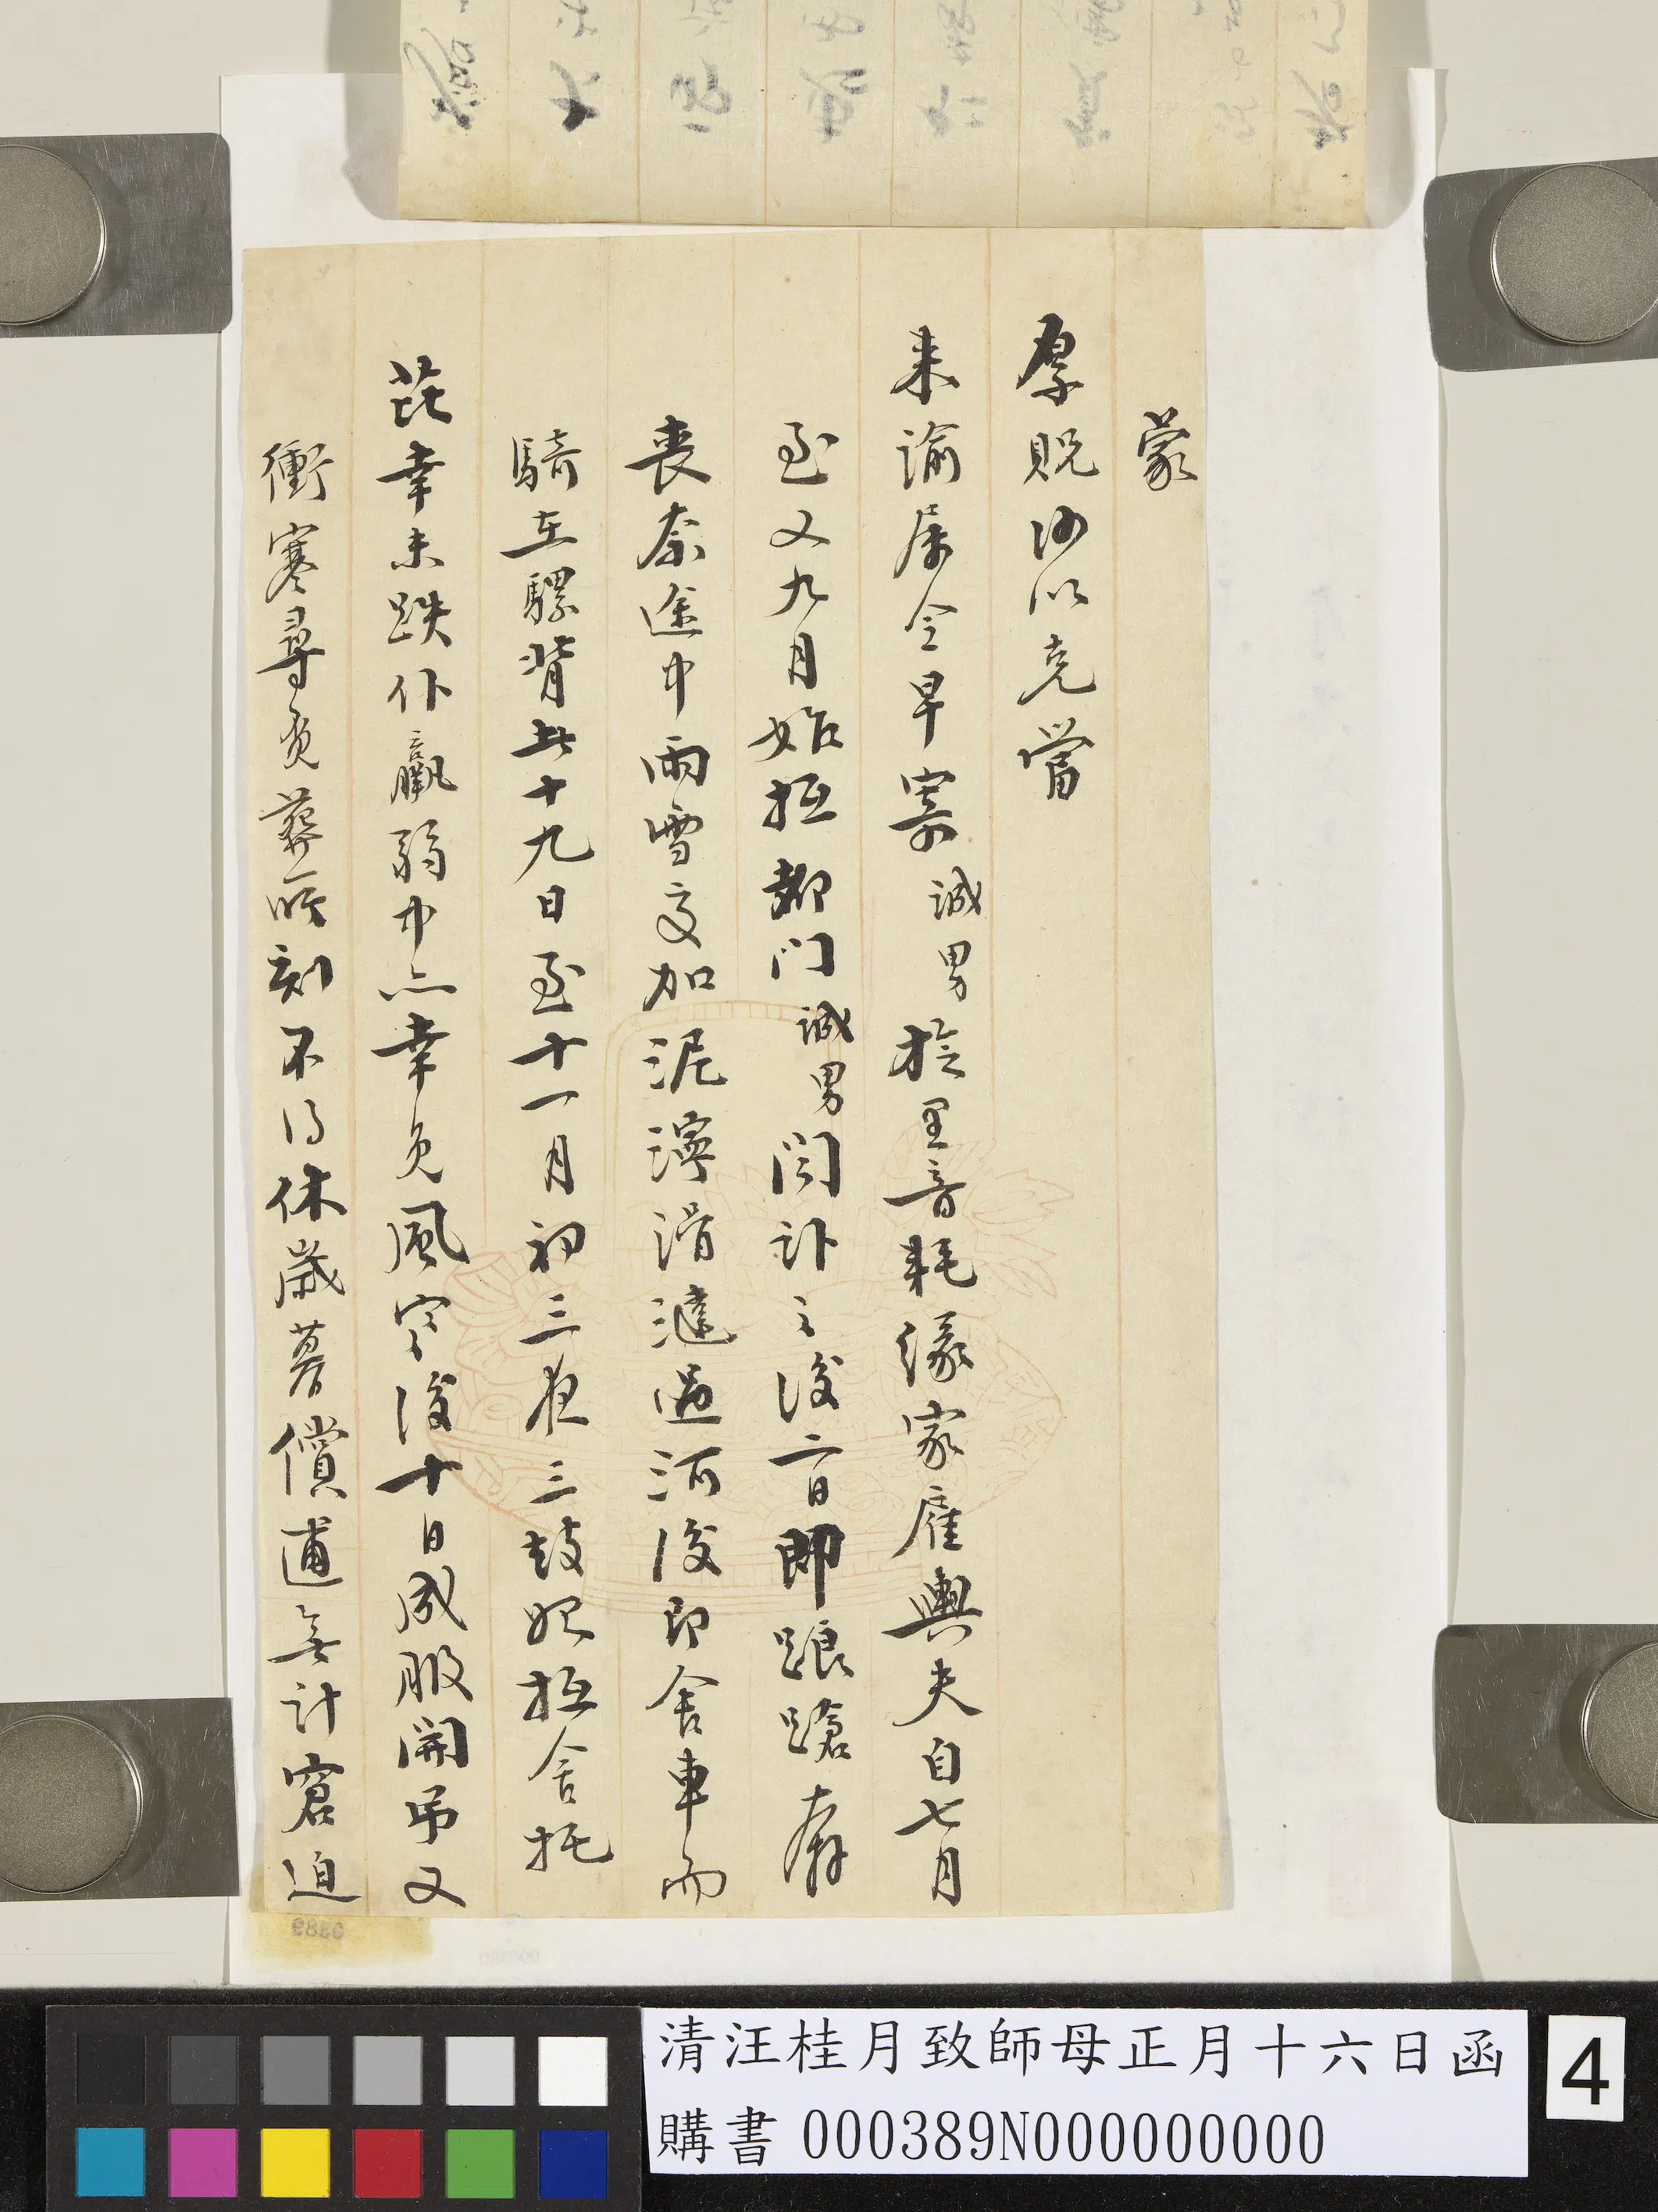 蒙
厚貺何以克當
来諭屬令早寄誠男於里音耗緣家雇輿夫自七月
至又九月始抵都門誠男聞訃之後二日即踉蹌奔
喪奈途中雨雪交加泥濘滑澾過河後即舍車而
騎在騾背共十九日至十一月初三夜三鼓始抵舍托
芘幸未跌仆羸弱中亦幸免風寒後十日成服開弔又
衝寒尋覓葬所刻不得休歲暮償逋無計窘迫
清汪桂月致師母正月十六日函
購書 000389N000000000
4